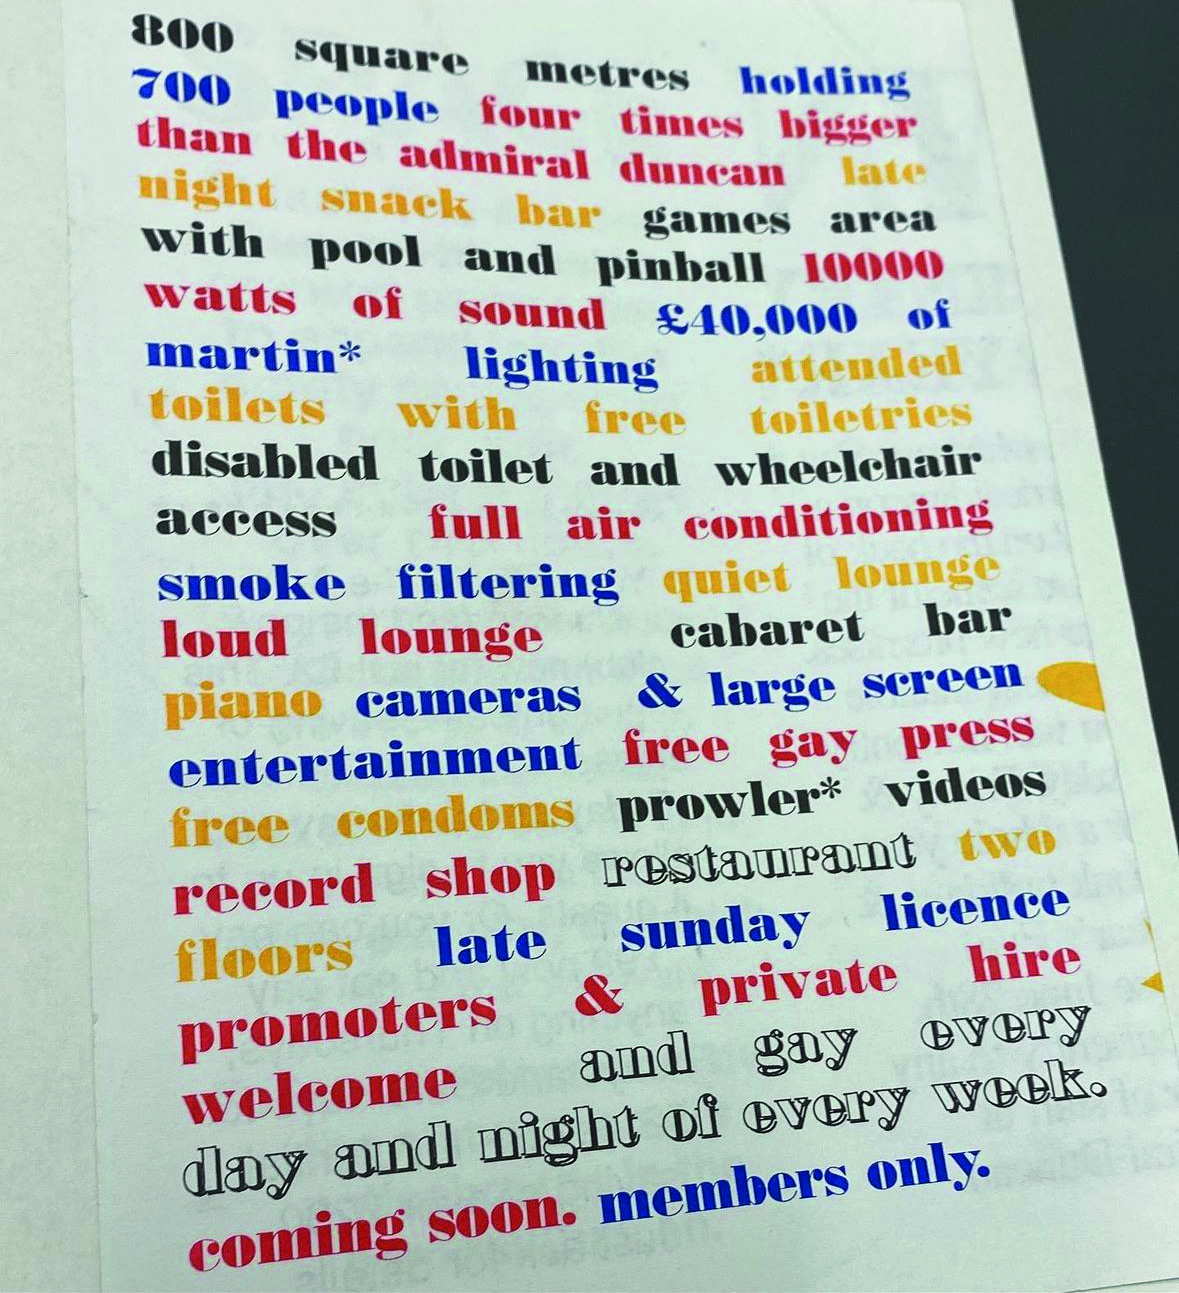 800 square metres holding
700 people four times bigger
than the admiral duncan late
night snack bar games area
with pool and pinball 10000
watts of sound £40,000 of
martin* lighting attended
toilets with free toiletries
disabled toilet and wheelchair
access full air conditioning
smoke filtering quiet lounge
loud lounge cabaret bar
piano cameras & large screen
entertainment free gay press
free condoms prowler* videos
record shop restaurant two
floors late sunday licence
promoters & private hire
welcome and gay every
day and night of every week.
coming soon. members only.